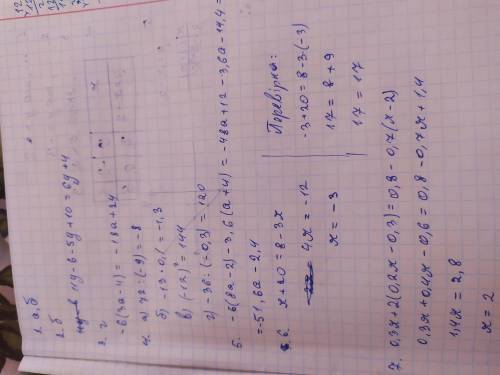 1. а, б
2. б
11y-6-5y+10 = 6y+4
3. г
-6(3a-4) = -18a+24
4. а) 72:(-9) = -8
б) -13·0,1 = -1,3
в) (-12)² = 144
г) -36:(-0,3) = 120
5. -6(8a-2)-3,6(a+4) = -48a+12-3,6a-14,4 =
= -51,6a-2,4
6. x+20 = 8-3x
4x = -12
x = -3
Перевірка:
-3+20 = 8-3·(-3)
17 = 8+9
17 = 17
7. 0,3x+2(0,2x-0,3) = 0,8-0,7(x-2)
0,3x+0,4x-0,6 = 0,8-0,7x+1,4
1,4x = 2,8
x = 2